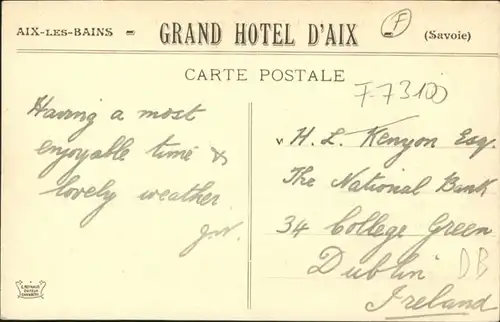 AIX-LES-BAINS - GRAND HOTEL D'AIX (Savoie)
F
CARTE POSTALE
F-73100
Having a most
enjoyable time &
lovely weather
J.W.
H. L. Kenyon Esq.
The National Bank
34 College Green
Dublin
DB
Ireland